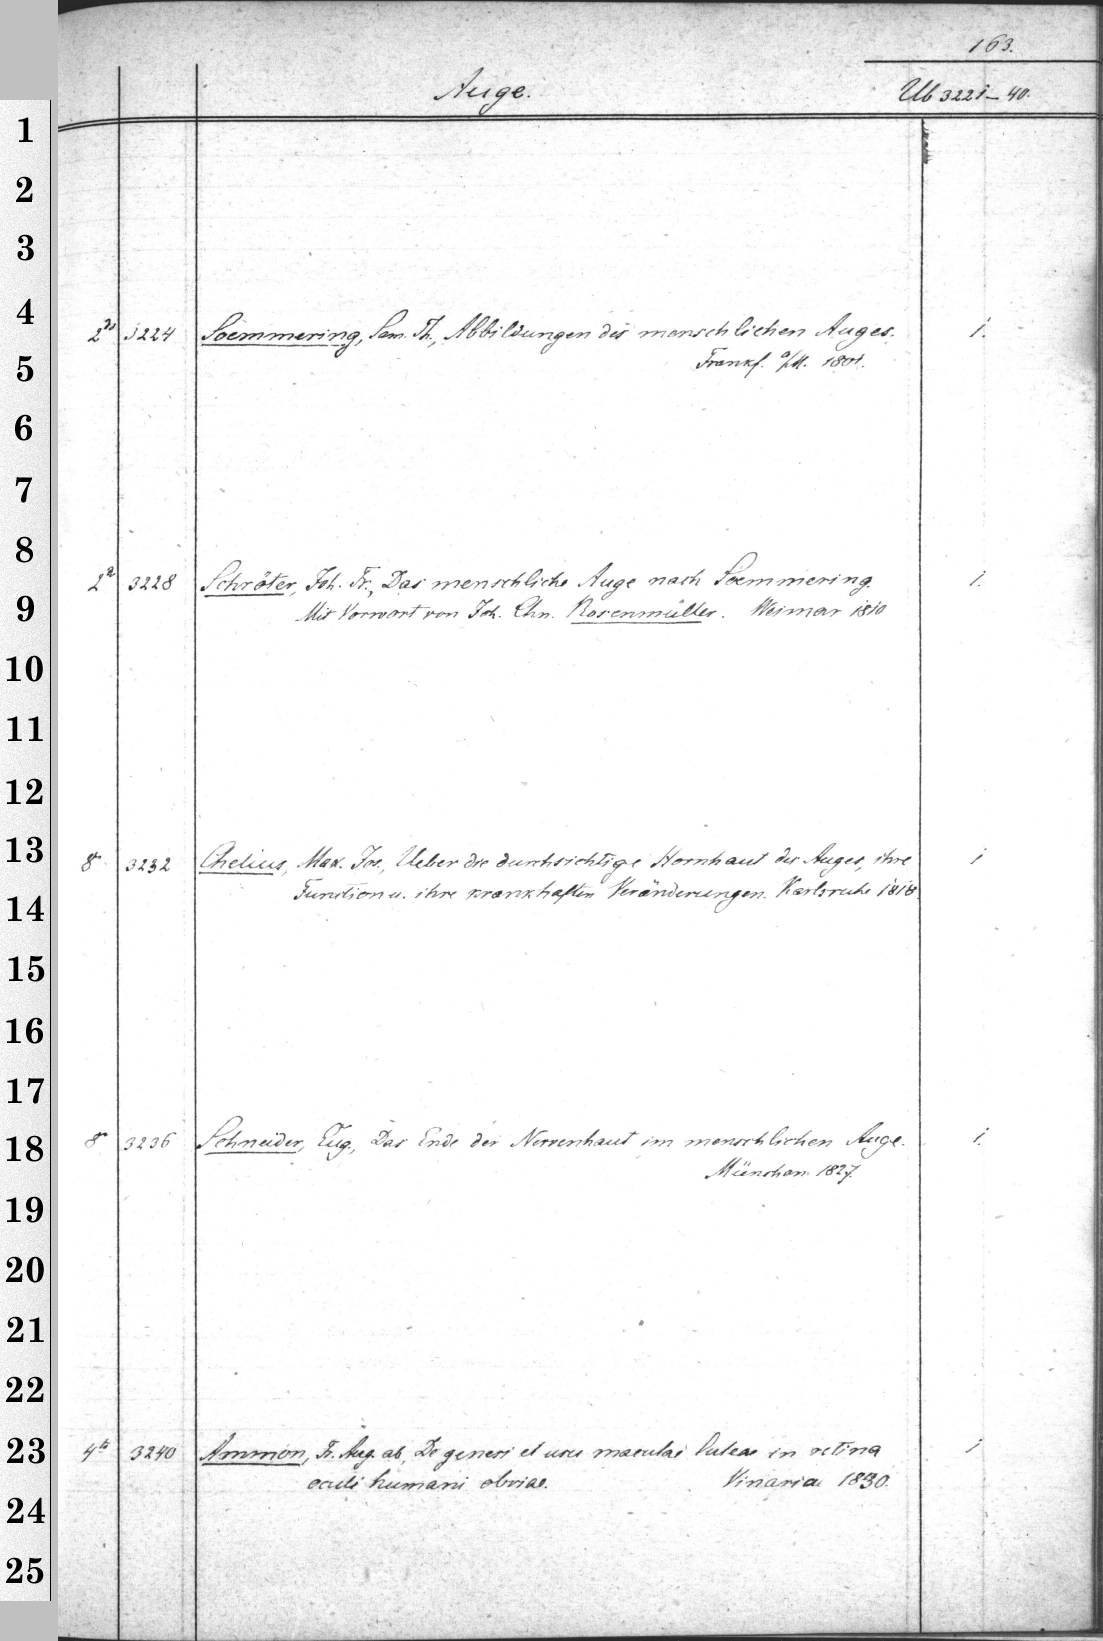 163.
Auge. Ub 3221-40.
1
2
3
4
2° 3224 Soemmering, Sam. Th., Abbildungen des menschlichen Auges. 1.
5
Frankf. a/M. 1801.
6
7
8
2° 3228 Schröter, Joh. Fr., Das menschliche Auge nach Soemmering 1.
9
Mit Vorwort von Joh. Chn. Rosenmüller. Weimar 1810
10
11
12
13
8° 3232 Chelius, Max. Jos., Ueber die durchsichtige Hornhaut des Auges, ihre 1
Function u. ihre krankhaften Veränderungen. Karlsruhe 1818.
14
15
16
17
8° 3236 Schneider, Eug., Das Ende der Nervenhaut im menschlichen Auge. 1.
18
München 1827.
19
20
21
22
23
4to 3240 Ammon, Fr. Aug. ab, De genesi et usu maculae luteae in retina 1
oculi humani obviae. Vinariae 1830.
24
25